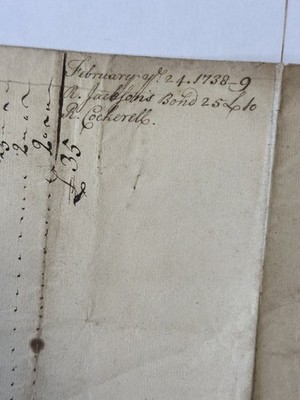 February yͤ. 24. 1738-9
R. Jackson's Bond 25£ to
R. Cockerell.
£ 35